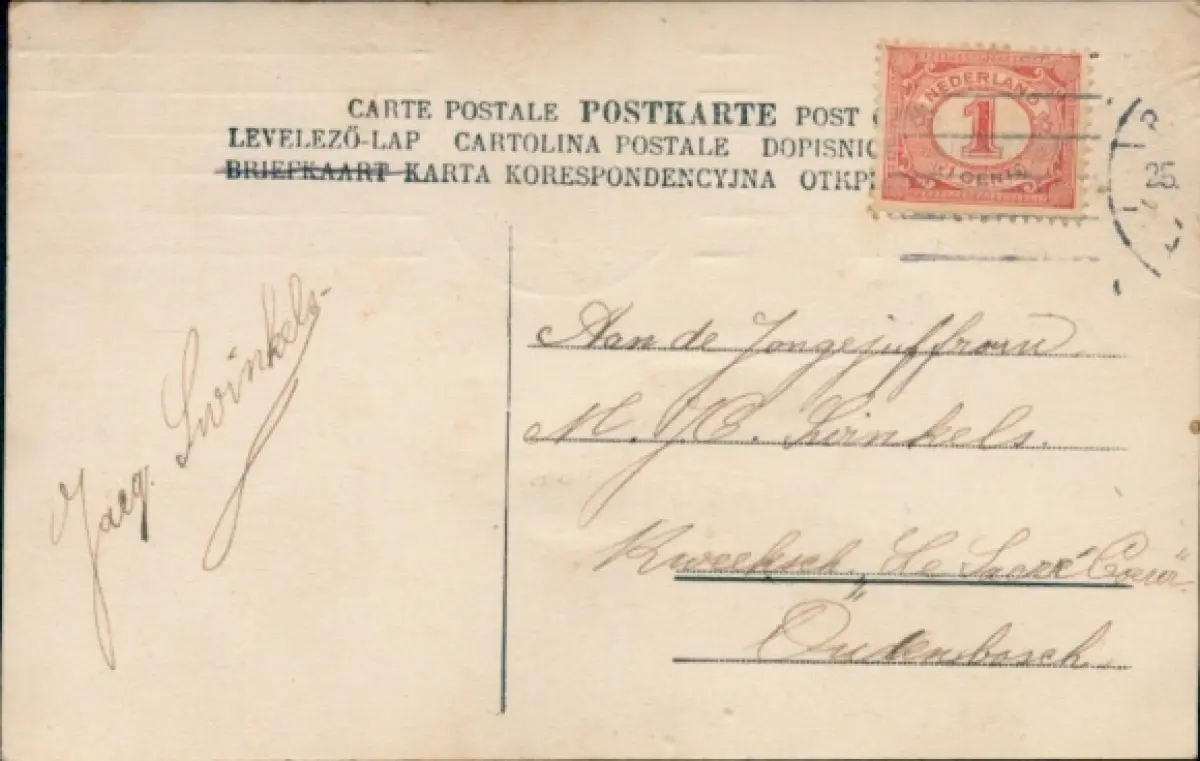 CARTE POSTALE POSTKARTE POST
LEVELEZŐ-LAP CARTOLINA POSTALE DOPISNIC
BRIEFKAART KARTA KORESPONDENCYJNA OTKP
NEDERLAND
1
1 CENT
25
Aan de Jongejuffrouw
M. J. C. Swinkels.
Kweeksch. "Le Sacré Cœur"
Oudenbosch
Jacq. Swinkels